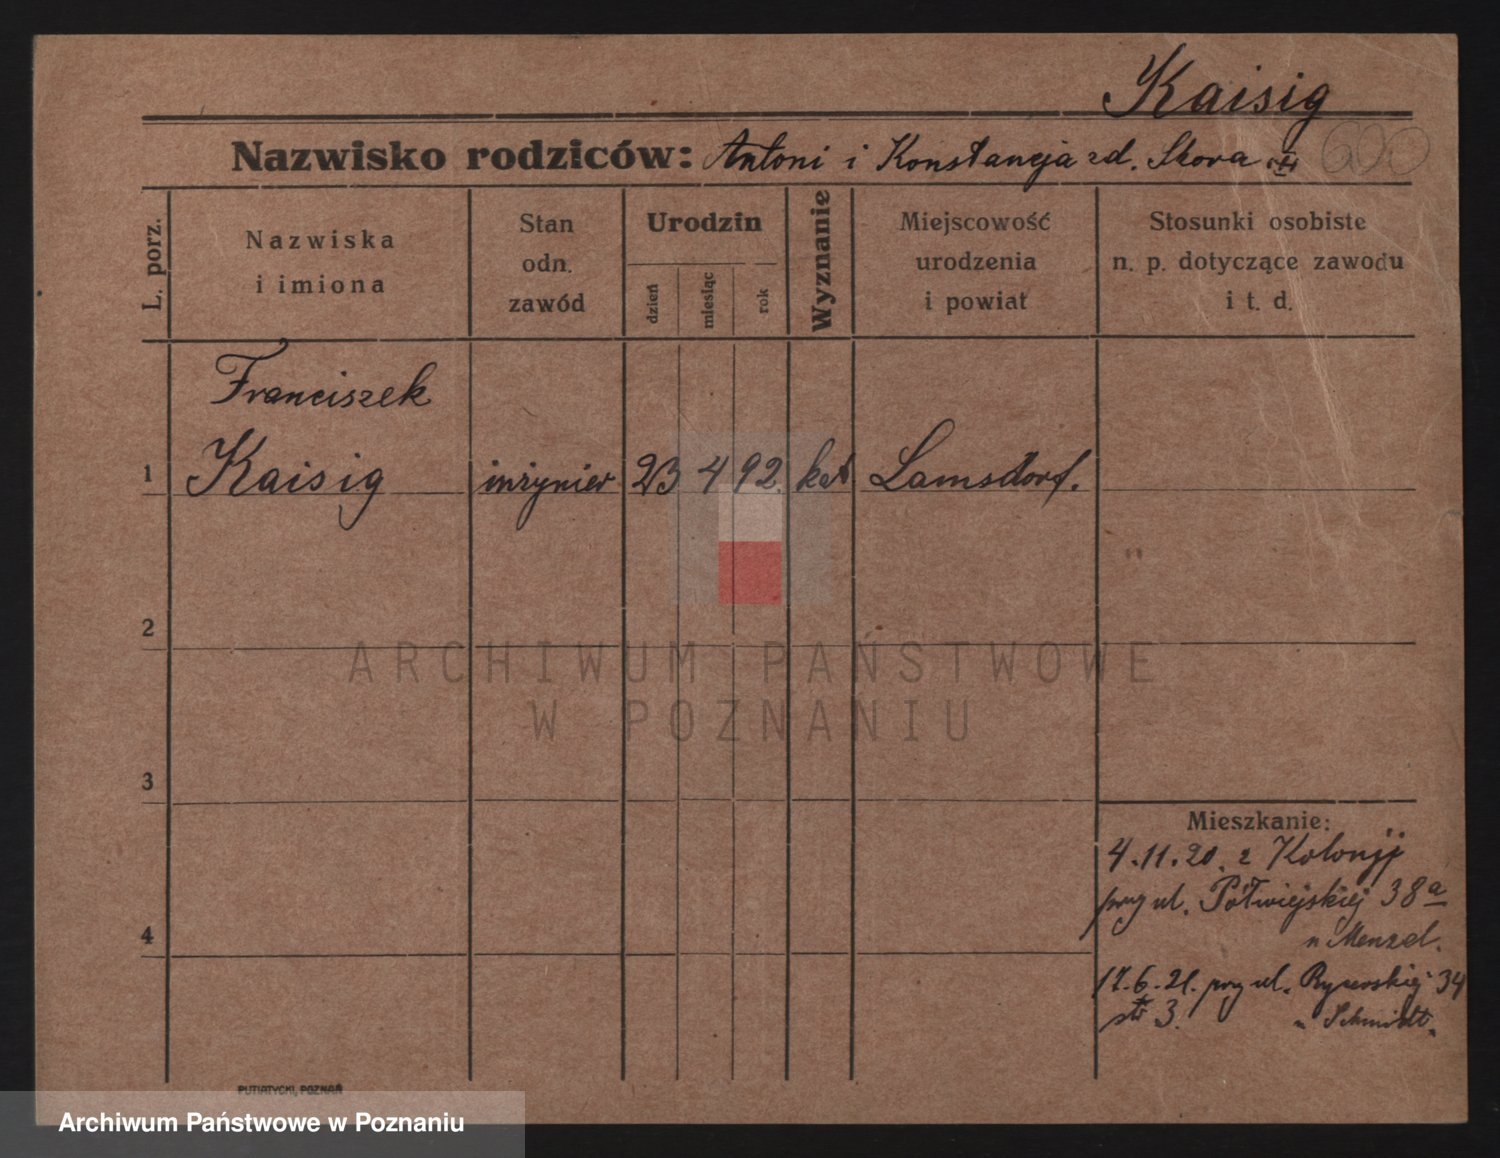 Kaisig
Nazwisko rodziców: Antoni i Konstancja zd. Skora 600
L. porz.
Nazwiska
i imiona
Stan
odn.
zawód
Urodzin
dzień
miesiąc
rok
Wyznanie
Miejscowość
urodzenia
i powiat
Stosunki osobiste
n. p. dotyczące zawodu
i t. d.
Franciszek
1 Kaisig inżynier 23 4 92 kat Lamsdorf.
2
3
4
Mieszkanie:
4.11.20. z Kolonji
przy ul. Półwiejskiej 38a
u Menzel.
17.6.21. przy ul. 34
3. u Schmidt.
PUTIATYCKI, POZNAŃ
ARCHIWUM PAŃSTWOWE
W POZNANIU
Archiwum Państwowe w Poznaniu